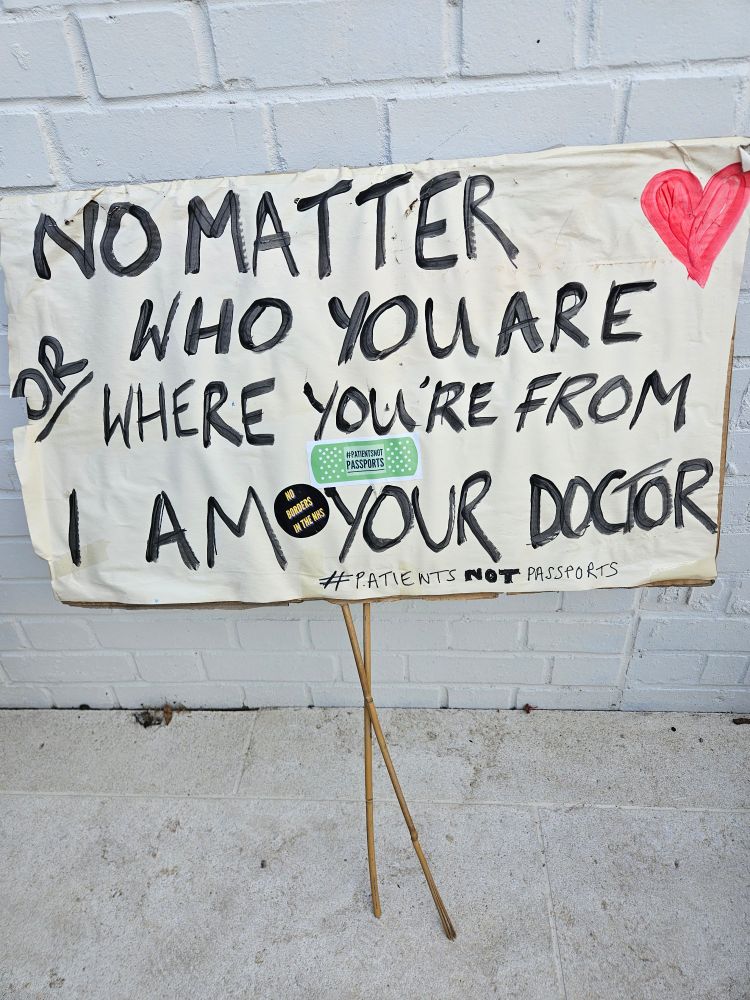 NO MATTER
WHO YOU ARE
OR WHERE YOU'RE FROM
#PATIENTSNOT
PASSPORTS
I AM YOUR DOCTOR
NO
BORDERS
IN THE NHS
#PATIENTS NOT PASSPORTS